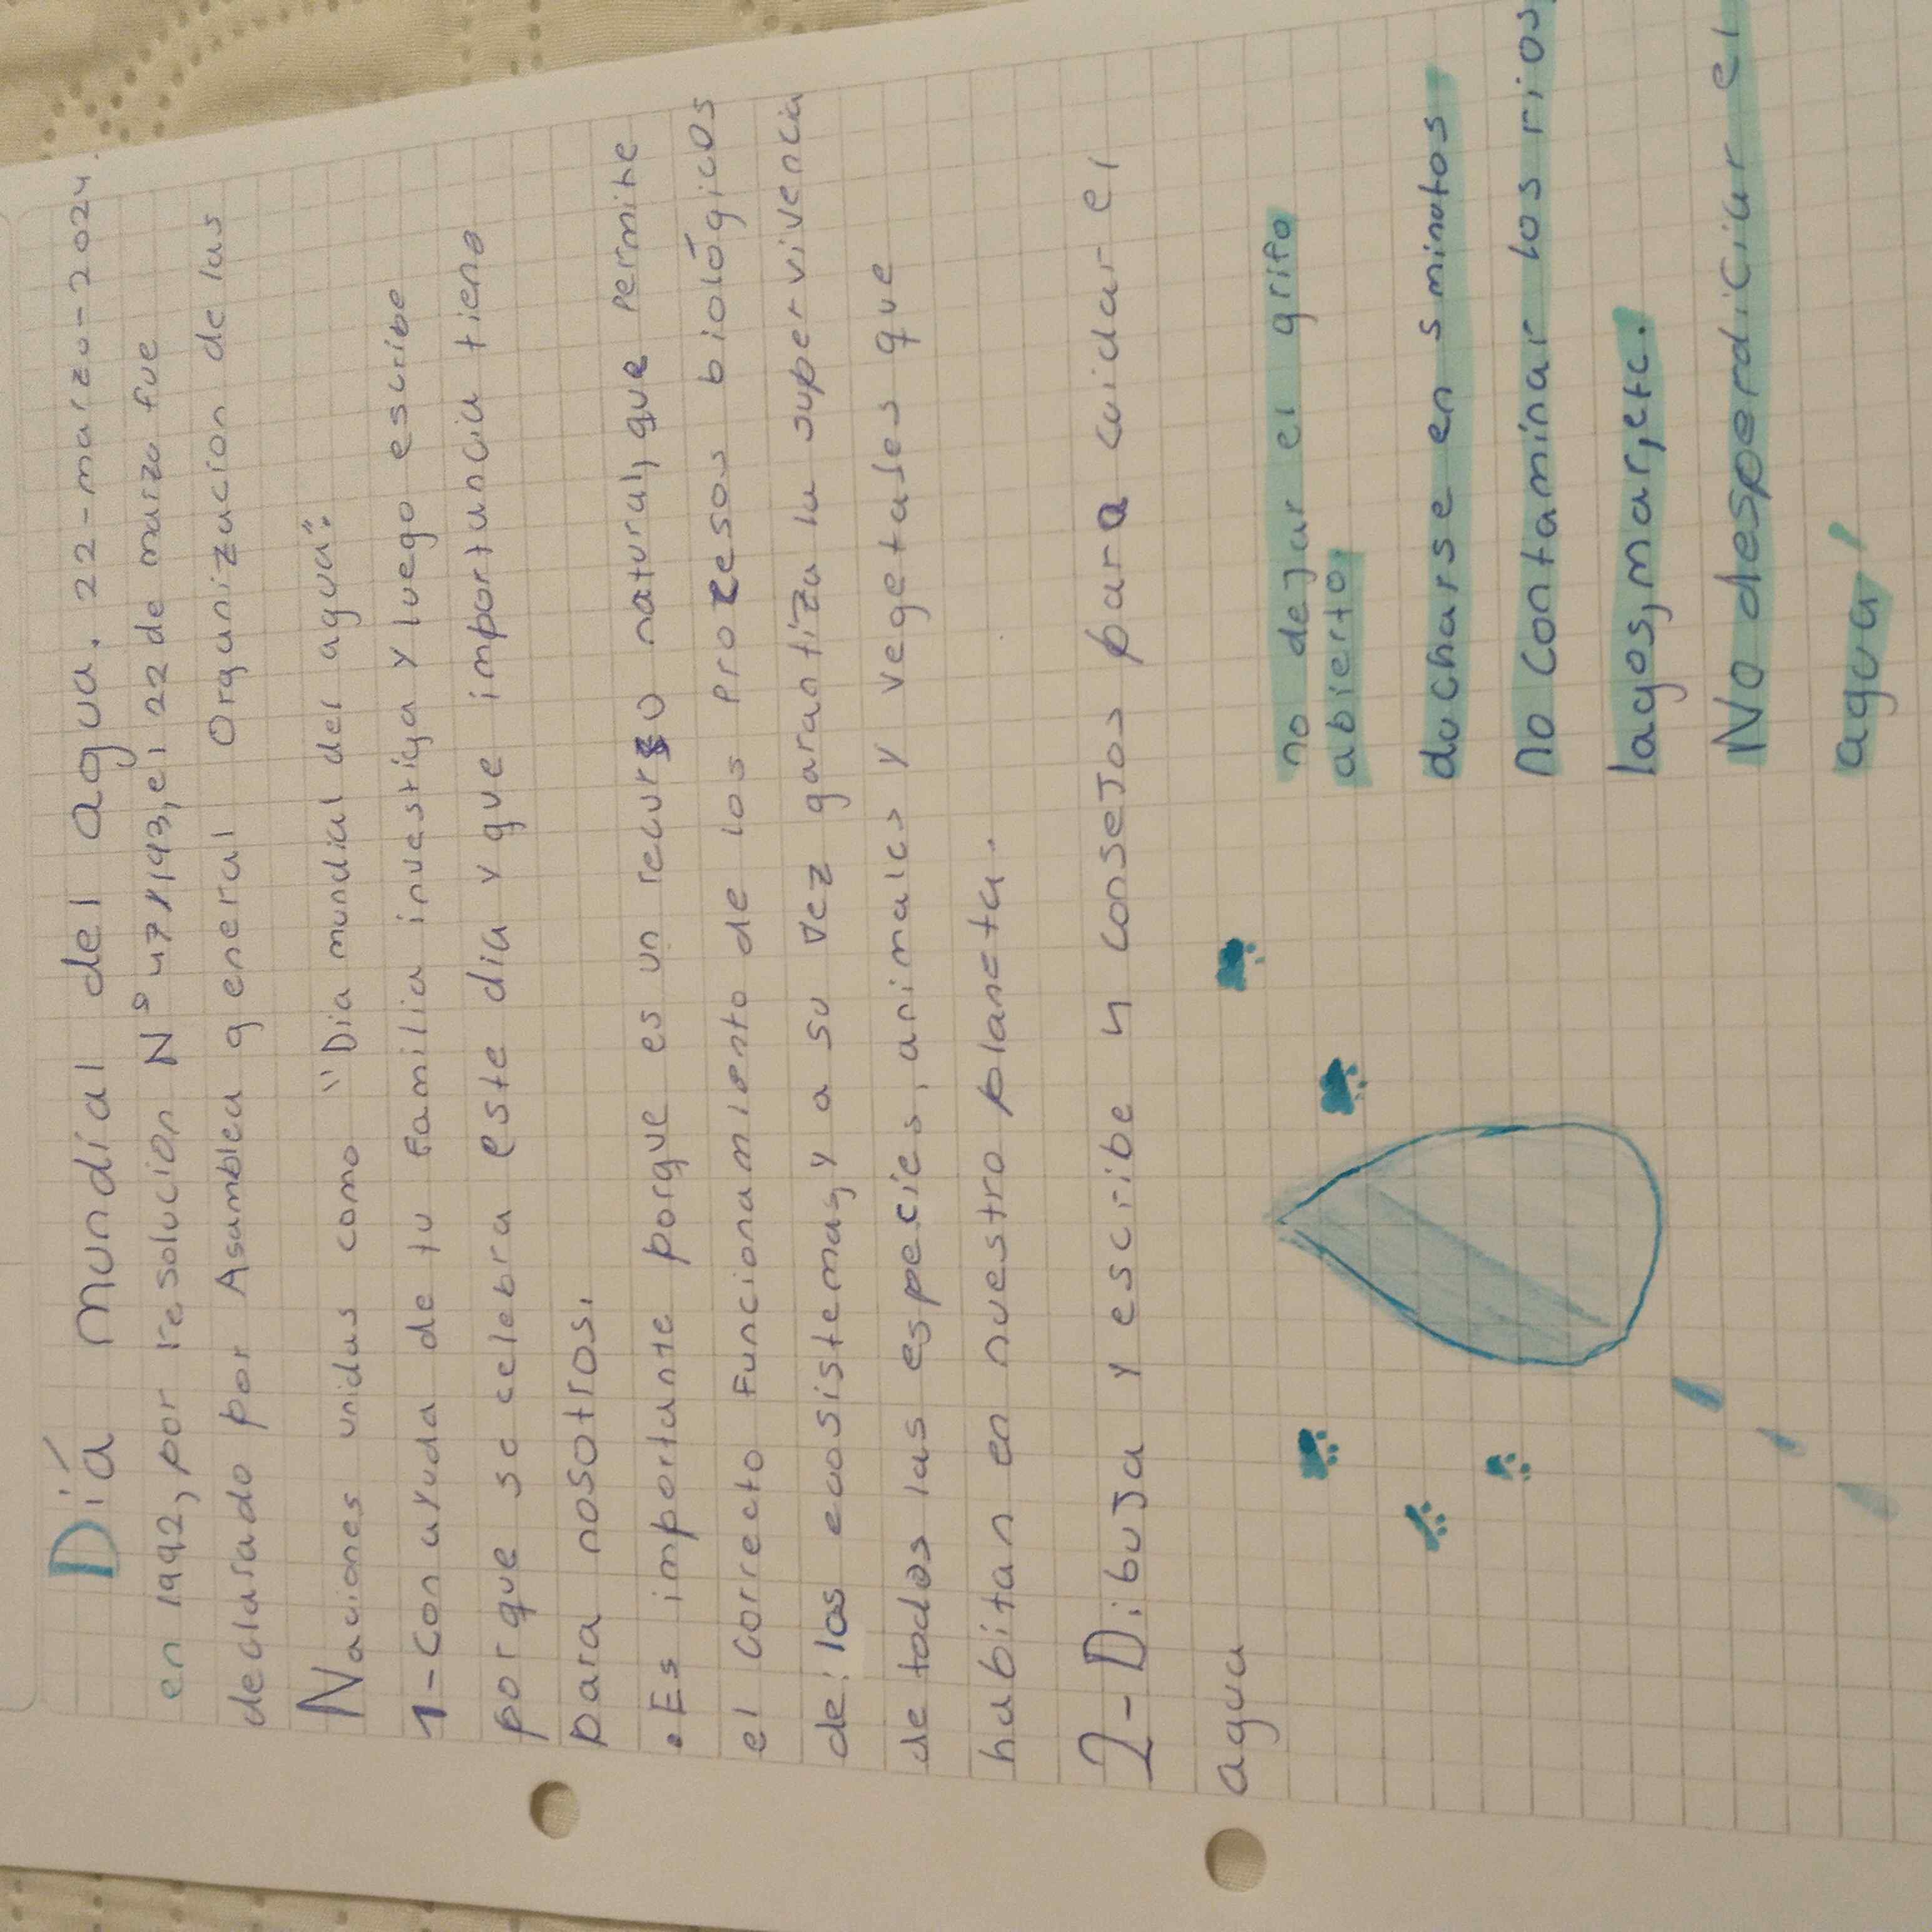 Día mundial del agua. 22-marzo-2024.
en 1992, por resolucion N° 47/193, el 22 de marzo fue
declarado por Asamblea general Organizacion de las
Naciones unidas como "Dia mundial del agua".
1-Con ayuda de tu Familia investiga y luego escribe
porque se celebra este dia y que importancia tiene
para nosotros.
• Es importante porque es un recurso natural, que permite
el correcto Funcionamiento de los procesos biológicos
de: los ecosistemas, y a su vez garantiza la supervivencia
de todas las especies, animales y vegetales que
habitan en nuestro planeta.
2-Dibuja y escribe 4 consejos para cuidar el
agua
no dejar el grifo
abierto,
ducharse en 5 minutos
No contaminar los rios,
lagos, mar, etc.
No desperdiciar el
agua